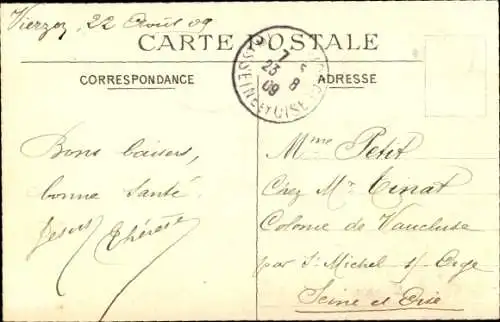 Vierzon, 22 Août 09
CARTE POSTALE
CORRESPONDANCE
ADRESSE
7
23 8
09
SEINE ET OISE
Bons baisers,
bonne santé
Thérèse
Mme Petit
Chez Mr Tinat
Colonie de Vaucluse
par St Michel s/ Orge
Seine et Oise